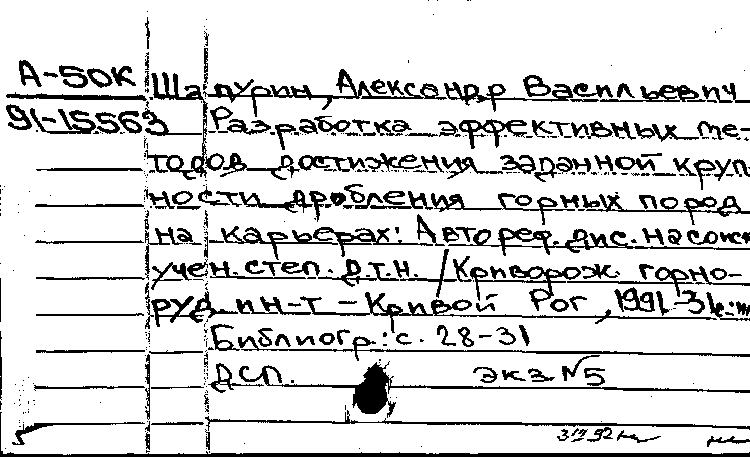 А-50К Шапурин, Александр Васильевич
91-15563 Разработка эффективных ме-
тодов достижения заданной круп
ности дробления горных пород
на карьерах: Автореф. дис. на соиск
учен. степ. д.т.н. /Криворож. горно-
руд. ин-т - Кривой Рог, 1991.- 31с.:
Библиогр.: с. 28-31
ДСП. экз. №5